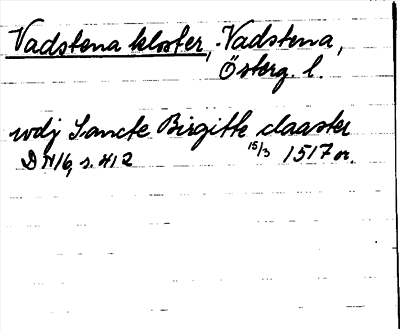 Vadstena kloster, Vadstena,
Österg. l.
wdj Sancte Birgitte claaster
DN 16, s. 412 15/3 1517 or.